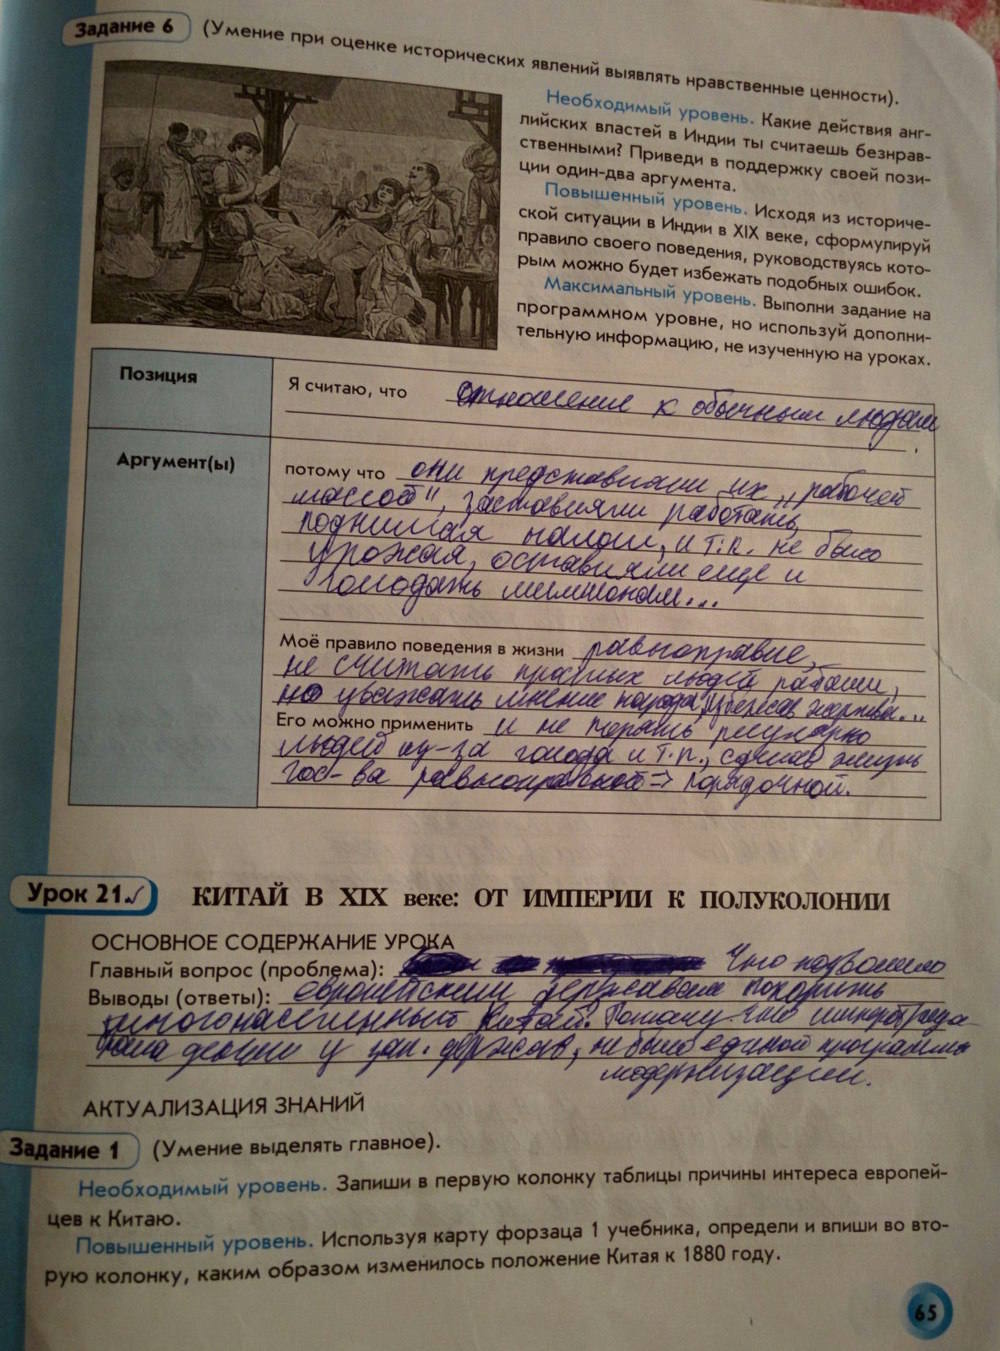 Задание 6 (Умение при оценке исторических явлений выявлять нравственные ценности).
Необходимый уровень. Какие действия анг-
лийских властей в Индии ты считаешь безнрав-
ственными? Приведи в поддержку своей пози-
ции один-два аргумента.
Повышенный уровень. Исходя из историче-
ской ситуации в Индии в XIX веке, сформулируй
правило своего поведения, руководствуясь кото-
рым можно будет избежать подобных ошибок.
Максимальный уровень. Выполни задание на
программном уровне, но используй дополни-
тельную информацию, не изученную на уроках.
Позиция
Я считаю, что отношение к обычным людям
.
Аргумент(ы)
потому что они представляли их „рабочей
массой", заставляли работать,
поднимая налоги, и т.п. не было
урожая, оставляли еще и
голодать миллионам...
Моё правило поведения в жизни равноправие,
не считать простых людей рабами,
но уважать мнение народа, избежав жертвы...
Его можно применить и не терять регулярно
людей из-за голода и т.п., сделав жизнь
гос-ва равноправной => порядочной.
Урок 21.✓ КИТАЙ В XIX веке: ОТ ИМПЕРИИ К ПОЛУКОЛОНИИ
ОСНОВНОЕ СОДЕРЖАНИЕ УРОКА
Главный вопрос (проблема): Что позволило
Выводы (ответы): европейским державам покорить
многонаселенный Китай. Потому что импер.
деньги у зап. держав, не было единой программы
модернизации.
АКТУАЛИЗАЦИЯ ЗНАНИЙ
Задание 1 (Умение выделять главное).
Необходимый уровень. Запиши в первую колонку таблицы причины интереса европей-
цев к Китаю.
Повышенный уровень. Используя карту форзаца 1 учебника, определи и впиши во вто-
рую колонку, каким образом изменилось положение Китая к 1880 году.
65